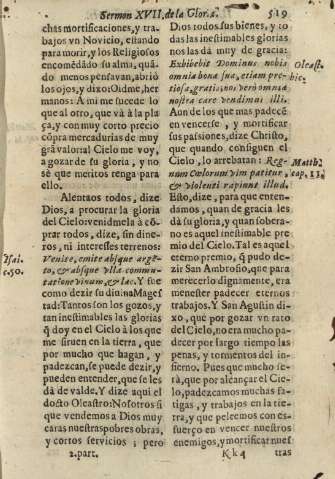 Sermon XVII. de la Gloria. 519
chas mortificaciones, y tra-
bajos vn Novicio, estando
para morir, y los Religiosos
encomēdādo su alma, quā-
do menos pensavan, abrió
los ojos, y dixo: Oidme, her
manos: A mi me sucede lo
que al otro, que và à la pla
ça, y con muy corto precio
cōpra mercadurias de muy
grā valor: al Cielo me voy,
a gozar de su gloria, y no
sè que meritos tenga para
ello.
Alentaos todos, dize
Dios, a procurar la gloria
del Cielo: venidmela à cō-
prar todos, dize, sin dine-
ros, ni interesses terrenos:
Venite, emite absque argē-
to, & absque vlla commu-
tatione vinum, & lac. Y fue
como dezir su diuina Mages
tad: Tantos son los gozos, y
tan inestimables las glorias
q̃ doy en el Cielo à los que
me siruen en la tierra, que
por mucho que hagan, y
padezcan, se puede dezir, y
pueden entender, que se les
dà de valde. Y dize aqui el
docto Oleastro: Nosotros si
que vendemos a Dios muy
caras nuestras pobres obras,
y cortos servicios; pero
2. part.
Isai.
c. 50.
Dios todos sus bienes, y to
das las inestimables glorias
nos las dá muy de gracia:
Exhibebit Dominus nobis
omnia bona sua, etiam pre-
tiosa, gratis; nos verò omnia
nostra care vendimus illi.
Aun de los que mas padecē
en vencerse, y mortificar
sus passiones, dize Christo,
que quando consiguen el
Cielo, lo arrebatan: Reg-
num Cœlorum vim patitur,
& violenti rapiunt illud.
Esto, dize, para que enten-
damos, quan de gracia les
dà su gloria, y quan sobera-
no es aquel inestimable pre
mio del Cielo. Tal es aquel
eterno premio, q̃ pudo de-
zir San Ambrosio, que para
merecerlo dignamente, era
menester padecer eternos
trabajos. Y San Agustin di-
xo, que por gozar vn rato
del Cielo, no era mucho pa-
decer por largo tiempo las
penas, y tormentos del in-
fierno. Pues que mucho se-
rà, que por alcançar el Cie-
lo, padezcamos muchas fa-
tigas, y trabajos en la tier-
ra, y que peleemos con es-
fuerço en vencer nuestros
enemigos, y mortificar nues
Kk4 tras
Oleast.
hic.
Matth.
cap. 11.